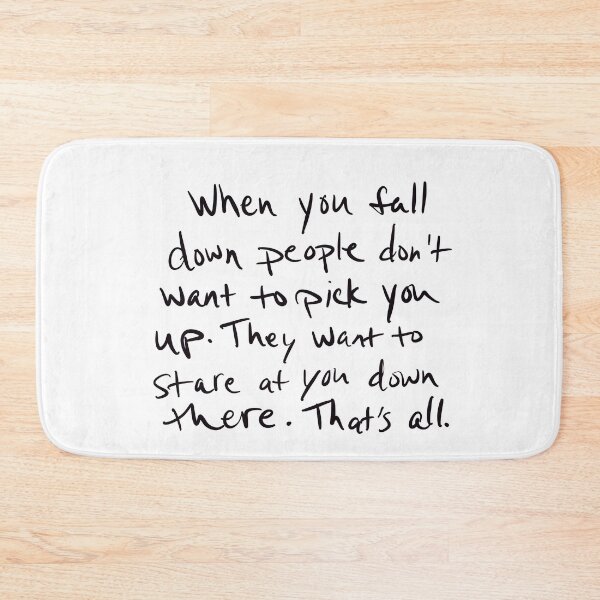 When you fall
down people don't
want to pick you
up. They want to
stare at you down
there. That's all.